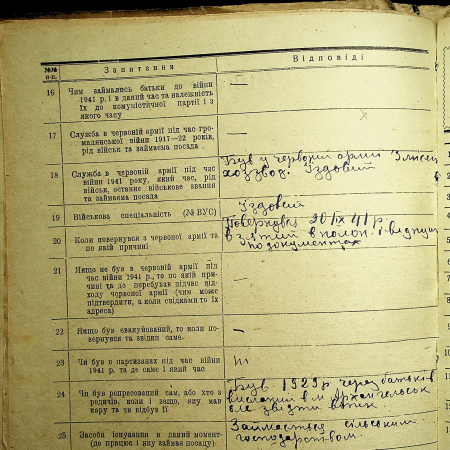 №№ п-п.
Запитання
Відповіді
16
Чим займались батьки до війни
1941 р. і в даний час та належність
їх до комуністичної партії і з
якого часу
—
17
Служба в червоній армії під час гро-
мадянської війни 1917—22 років,
рід військ та займаєма посада
—
18
Служба в червоній армії під час
війни 1941 року, який час, рід
військ, останнє військове звання
та займаєма посада
Був у червоній армії
хозвзвод. Їздовий
19
Військова спеціальність (№ ВУС)
Їздовий
20
Коли повернувся з червоної армії та
по якій причині
Повернувся 20/IX 41 р.
взятий в полон і
по документах
21
Якщо не був в червоній армії під
час війни 1941 р., то по якій при-
чині та де перебував підчас від-
ходу червоної армії (чим може
підтвердити, а коли свідками то їх
адреса)
—
22
Якщо був евакуйований, то коли по-
вернувся та звідки саме
—
23
Чи був в партизанах під час війни
1941 р. та де саме і який час
Ні
24
Чи був репресований сам, або хто з
родичів, коли і защо, яку мав
кару та чи відбув її
Був 1929 р через батьків
висланий в м. Архангельськ
але звідти втік.
25
Засоби існування в даний момент
(де працює і яку займає посаду)
Займається сільським
господарством.